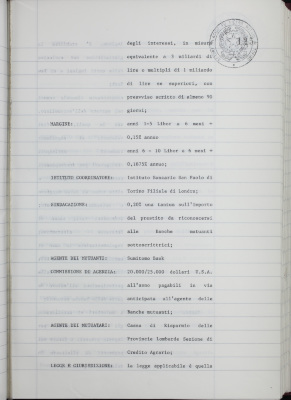 degli interessi, in misura
equivalente a 3 miliardi di
lire o multipli di 1 miliardo
di lire se superiori, con
preavviso scritto di almeno 90
giorni;
MARGINE: anni 1-5 Libor a 6 mesi +
0,15% annuo
anni 6 - 10 Libor a 6 mesi +
0,1875% annuo;
ISTITUTO COORDINATORE: Istituto Bancario San Paolo di
Torino Filiale di Londra;
SINDACAZIONE: una tantum sull'importo
del prestito da riconoscersi
alle Banche mutuanti
sottoscrittrici;
AGENTE DEI MUTUANTI: Sumitomo Bank
COMMISSIONE DI AGENZIA: 20.000/25.000 dollari U.S.A.
all'anno pagabili in via
anticipata all'agente delle
Banche mutuanti;
AGENTE DEI MUTUATARI: Cassa di Risparmio delle
Provincie Lombarde Sezione di
Credito Agrario;
LEGGE E GIURISDIZIONE: la legge applicabile è quella